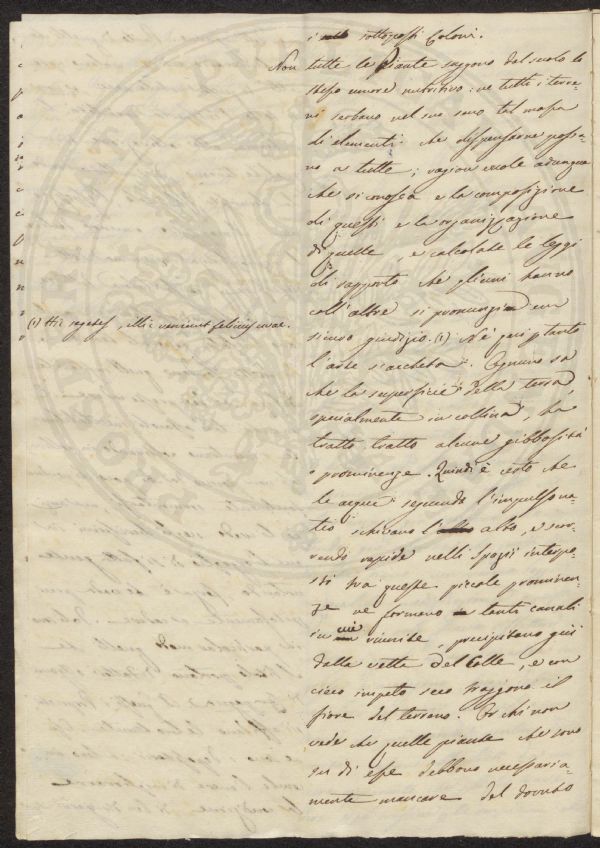 i sottoposti Coloni.
Non tutte le Piante suggono dal suolo lo
stesso umore nutritivo: ne tutti i terre-
ni serbano nel suo seno tal massa
di elementi che dispensarne possa-
no a tutte; ragion vuole adunque
che si conosca e la composizione
di questi e la organizzazione
di quelle, e calcolate le leggi
di rapporto che gli uni hanno
coll'altre si pronunzi un
sicuro giudizio. (1) Nè per tanto
l'arte s'accheta. Ognuno sa
che la superficie della terra,
specialmente in collina, ha
tratto tratto alcune gibbosità
o prominenze. Quindi è certo che
le acque secondo l'impulso na-
tio schivano l' alto, e scor-
rendo rapide nelli spazii interpo-
sti tra queste piccole prominen-
ze ne formano tanti canali
in cui riunite, precipitano giù
dalla vetta del Colle, e con
cieco impeto seco traggono il
fiore del terreno. Or chi non
vede che quelle piante che sono
su di esse debbono necessaria-
mente mancare del dovuto
(1) Hic segetes, illic veniunt felicius uvae.